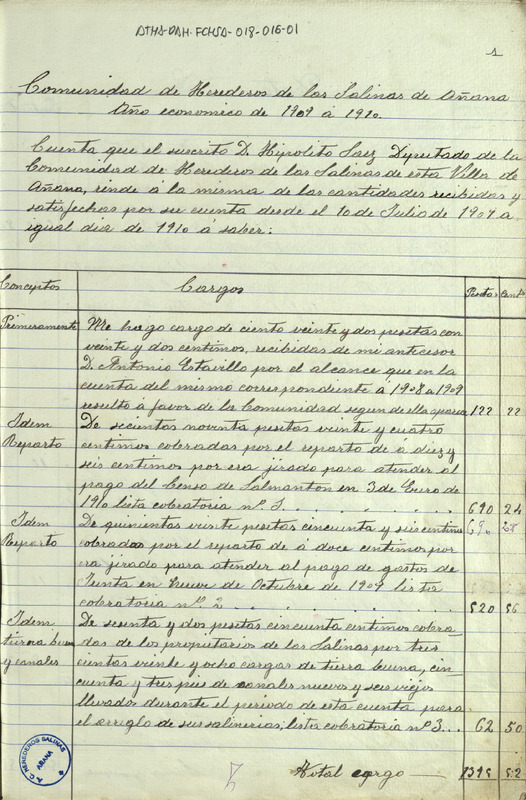 ATHA-DAH-FCHSA-018-016-01
1
Comunidad de Herederos de las Salinas de Añana
Año economico de 1909 á 1910.
Cuenta que el suscrito D. Hipolito Saez Diputado de la
Comunidad de Herederos de las Salinas de esta Villa de
Añana, rinde á la misma de las cantidades recibidas y
satisfechas por su cuenta desde el 10 de Julio de 1909 a
igual dia de 1910 á saber:
Conceptos Cargos Pesetas Cents
Primeramente Me hago cargo de ciento veinte y dos pesetas con
veinte y dos centimos, recibidas de mi antecesor
D. Antonio Estavillo por el alcance que en la
cuenta del mismo correspondiente á 1908 a 1909
resultó á favor de la Comunidad segun de ella aparece 122 22
Idem De seicientos noventa pesetas veinte y cuatro
Reparto centimos cobradas por el reparto de á diez y
seis centimos por era jirado para atender al
pago del Censo de Salmanton en 3 de Enero de
1910 lista cobratoria nº 1. 690 24
Idem De quinientas veinte pesetas cincuenta y seis centimos
Reparto cobradas por el reparto de á doce centimos por
era jirado para atender al pago de gastos de
Junta en nueve de Octubre de 1909 lista
cobratoria nº 2 520 56
Idem De sesenta y dos pesetas cincuenta centimos cobra-
tierra buena das de los propietarios de las Salinas por tres
y canales cientas veinte y ocho cargas de tierra buena, cin-
cuenta y tres pies de canales nuevos y seis viejos
llevados durante el periodo de esta cuenta para
el arreglo de sus salinerias; lista cobratoria nº 3... 62 50
Total cargo 1395 52
T. C. HEREDEROS SALINAS
AÑANA